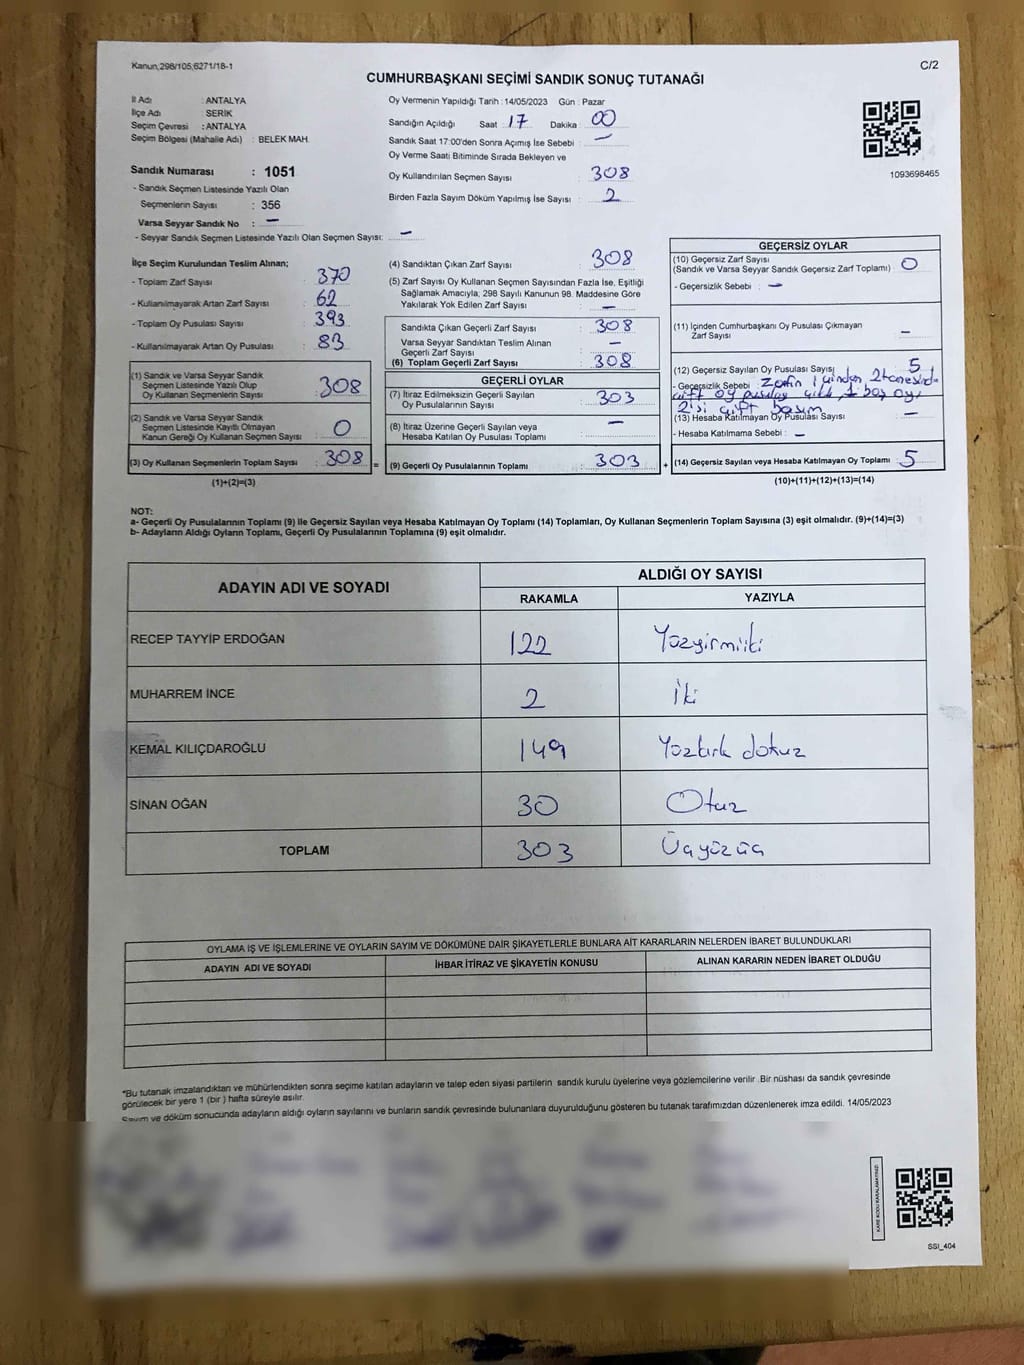 Kanun;298/105;6271/18-1
C/2
CUMHURBAŞKANI SEÇİMİ SANDIK SONUÇ TUTANAĞI
İl Adı : ANTALYA
İlçe Adı : SERİK
Seçim Çevresi : ANTALYA
Seçim Bölgesi (Mahalle Adı) : BELEK MAH.
Sandık Numarası : 1051
- Sandık Seçmen Listesinde Yazılı Olan
Seçmenlerin Sayısı : 356
Varsa Seyyar Sandık No : —
- Seyyar Sandık Seçmen Listesinde Yazılı Olan Seçmen Sayısı: —
Oy Vermenin Yapıldığı Tarih : 14/05/2023 Gün : Pazar
Sandığın Açıldığı Saat : 17 Dakika : 00
Sandık Saat 17:00'den Sonra Açımış İse Sebebi : —
Oy Verme Saati Bitiminde Sırada Bekleyen ve
Oy Kullandırılan Seçmen Sayısı : 308
Birden Fazla Sayım Döküm Yapılmış İse Sayısı : 2
1093698465
İlçe Seçim Kurulundan Teslim Alınan;
- Toplam Zarf Sayısı : 370
- Kullanılmayarak Artan Zarf Sayısı : 62
- Toplam Oy Pusulası Sayısı : 393
- Kullanılmayarak Artan Oy Pusulası : 83
(1) Sandık ve Varsa Seyyar Sandık
Seçmen Listesinde Yazılı Olup
Oy Kullanan Seçmenlerin Sayısı : 308
(2) Sandık ve Varsa Seyyar Sandık
Seçmen Listesinde Kayıtlı Olmayan
Kanun Gereği Oy Kullanan Seçmen Sayısı : 0
(3) Oy Kullanan Seçmenlerin Toplam Sayısı : 308 =
(1)+(2)=(3)
(4) Sandıktan Çıkan Zarf Sayısı : 308
(5) Zarf Sayısı Oy Kullanan Seçmen Sayısından Fazla İse, Eşitliği
Sağlamak Amacıyla, 298 Sayılı Kanunun 98. Maddesine Göre
Yakılarak Yok Edilen Zarf Sayısı : —
Sandıkta Çıkan Geçerli Zarf Sayısı : 308
Varsa Seyyar Sandıktan Teslim Alınan
Geçerli Zarf Sayısı : —
(6) Toplam Geçerli Zarf Sayısı : 308
GEÇERLİ OYLAR
(7) İtiraz Edilmeksizin Geçerli Sayılan
Oy Pusulalarının Sayısı : 303
(8) İtiraz Üzerine Geçerli Sayılan veya
Hesaba Katılan Oy Pusulası Toplamı : —
(9) Geçerli Oy Pusulalarının Toplamı : 303 +
GEÇERSİZ OYLAR
(10) Geçersiz Zarf Sayısı
(Sandık ve Varsa Seyyar Sandık Geçersiz Zarf Toplamı) : 0
- Geçersizlik Sebebi : —
(11) İçinden Cumhurbaşkanı Oy Pusulası Çıkmayan
Zarf Sayısı : —
(12) Geçersiz Sayılan Oy Pusulası Sayısı : 5
- Geçersizlik Sebebi : Zarfın içinden 2tanesinde
çift oy pusulası çıktı 1 boş oy,
2si çift basım
(13) Hesaba Katılmayan Oy Pusulası Sayısı : —
- Hesaba Katılmama Sebebi : —
(14) Geçersiz Sayılan veya Hesaba Katılmayan Oy Toplamı : 5
(10)+(11)+(12)+(13)=(14)
NOT:
a- Geçerli Oy Pusulalarının Toplamı (9) ile Geçersiz Sayılan veya Hesaba Katılmayan Oy Toplamı (14) Toplamları, Oy Kullanan Seçmenlerin Toplam Sayısına (3) eşit olmalıdır. (9)+(14)=(3)
b- Adayların Aldığı Oyların Toplamı, Geçerli Oy Pusulalarının Toplamına (9) eşit olmalıdır.
ADAYIN ADI VE SOYADI ALDIĞI OY SAYISI
RAKAMLA YAZIYLA
RECEP TAYYİP ERDOĞAN 122 Yüzyirmiiki
MUHARREM İNCE 2 İki
KEMAL KILIÇDAROĞLU 149 Yüzkırk dokuz
SİNAN OĞAN 30 Otuz
TOPLAM 303 Üçyüzüç
OYLAMA İŞ VE İŞLEMLERİNE VE OYLARIN SAYIM VE DÖKÜMÜNE DAİR ŞİKAYETLERLE BUNLARA AİT KARARLARIN NELERDEN İBARET BULUNDUKLARI
ADAYIN ADI VE SOYADI İHBAR İTİRAZ VE ŞİKAYETİN KONUSU ALINAN KARARIN NEDEN İBARET OLDUĞU
*Bu tutanak imzalandıktan ve mühürlendikten sonra seçime katılan adayların ve talep eden siyasi partilerin sandık kurulu üyelerine veya gözlemcilerine verilir. Bir nüshası da sandık çevresinde
görülecek bir yere 1 (bir ) hafta süreyle asılır.
Sayım ve döküm sonucunda adayların aldığı oyların sayılarını ve bunların sandık çevresinde bulunanlara duyurulduğunu gösteren bu tutanak tarafımızdan düzenlenerek imza edildi. 14/05/2023
KARE KODU KARALAMAYINIZ!
SSI_404